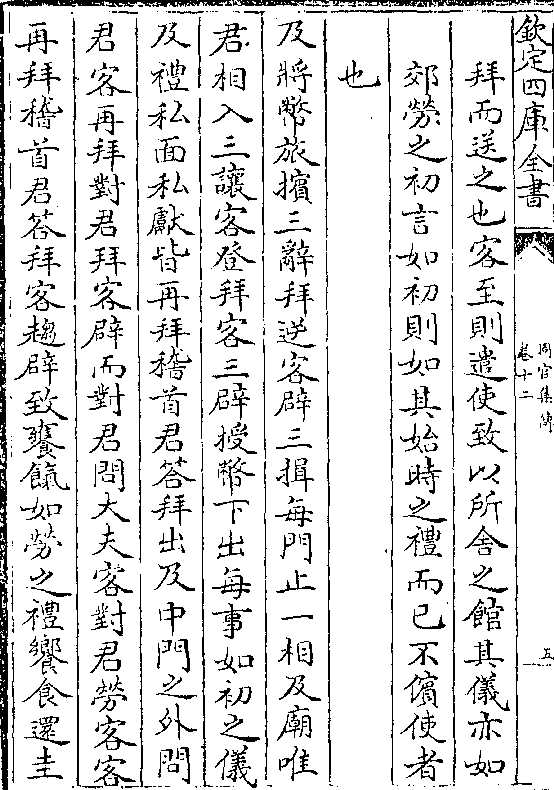 欽定四庫全書
周官集傳
卷十二
五
拜而送之也客至則遣使致以所舍之館其儀亦如
郊勞之初言如初則如其始時之禮而已不儐使者
也
及將幣旅擯三辭拜逆客辟三揖每門止一相及廟唯
君相入三讓客登拜客三辟授幣下出每事如初之儀
及禮私面私獻皆再拜稽首君答拜出及中門之外問
君客再拜對君拜客辟而對君問大夫客對君勞客客
再拜稽首君答拜客趨辟致饔餼如勞之禮饗食還圭